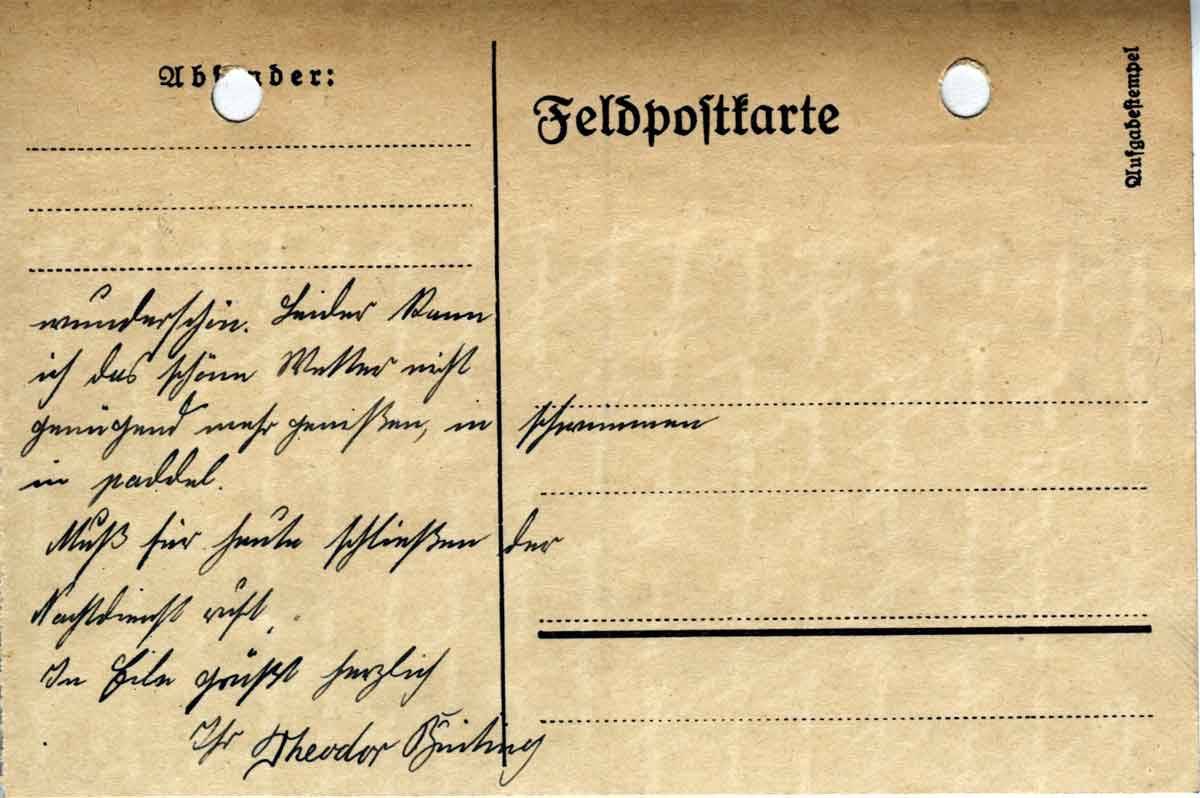 Absender:
Feldpostkarte
Aufgabestempel
wunderschön. Leider kann
ich das schöne Wetter nicht
genügend mehr genißen, in schwimmen
in paddel.
Muß für heute schließen der
Nachtdienst ruft.
In Eile grüßt herzlich
Ihr Theodor